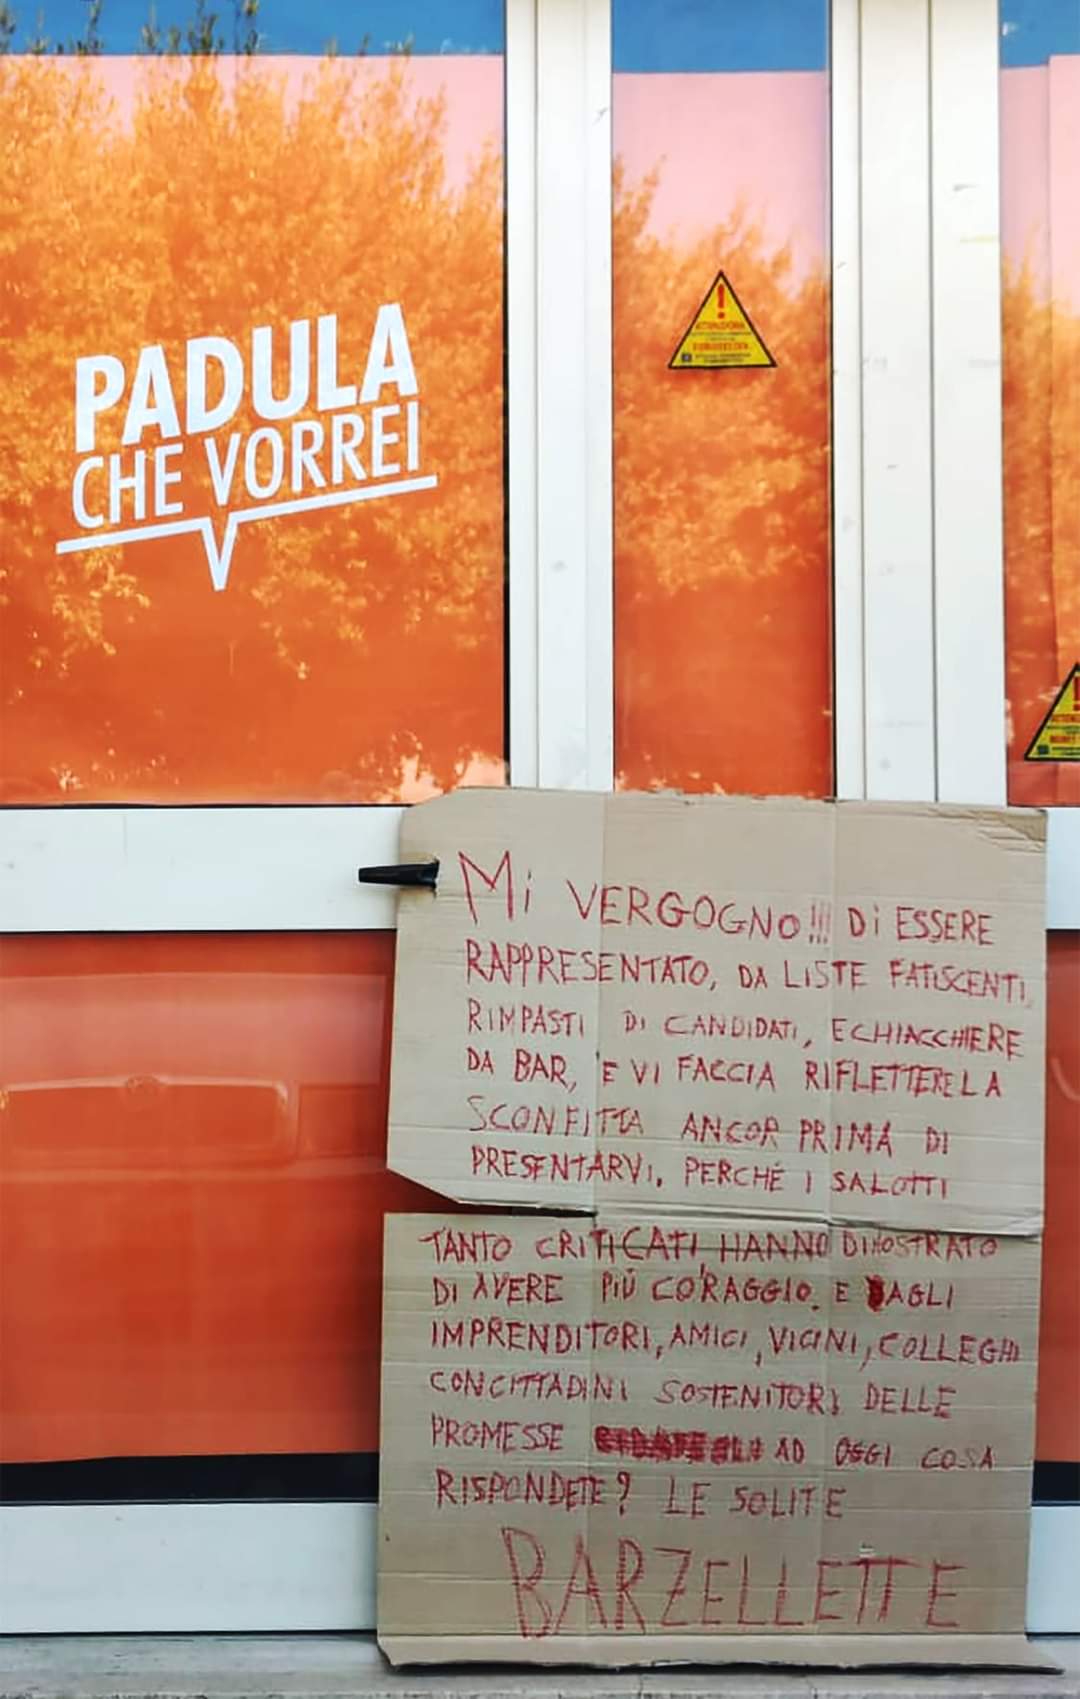 PADULA
CHE VORREI
Mi VERGOGNO!!! Di ESSERE
RAPPRESENTATO, DA LISTE FATISCENTI,
RIMPASTI DI CANDIDATI, E CHIACCHIERE
DA BAR, E VI FACCIA RIFLETTERE LA
SCONFITTA ANCOR PRIMA DI
PRESENTARVI. PERCHÉ I SALOTTI
TANTO CRITICATI, HANNO DIMOSTRATO
DI AVERE PIÙ CORAGGIO. E AGLI
IMPRENDITORI, AMICI, VICINI, COLLEGHI
CONCITTADINI SOSTENITORI DELLE
PROMESSE AD OGGI COSA
RISPONDETE? LE SOLITE
BARZELLETTE